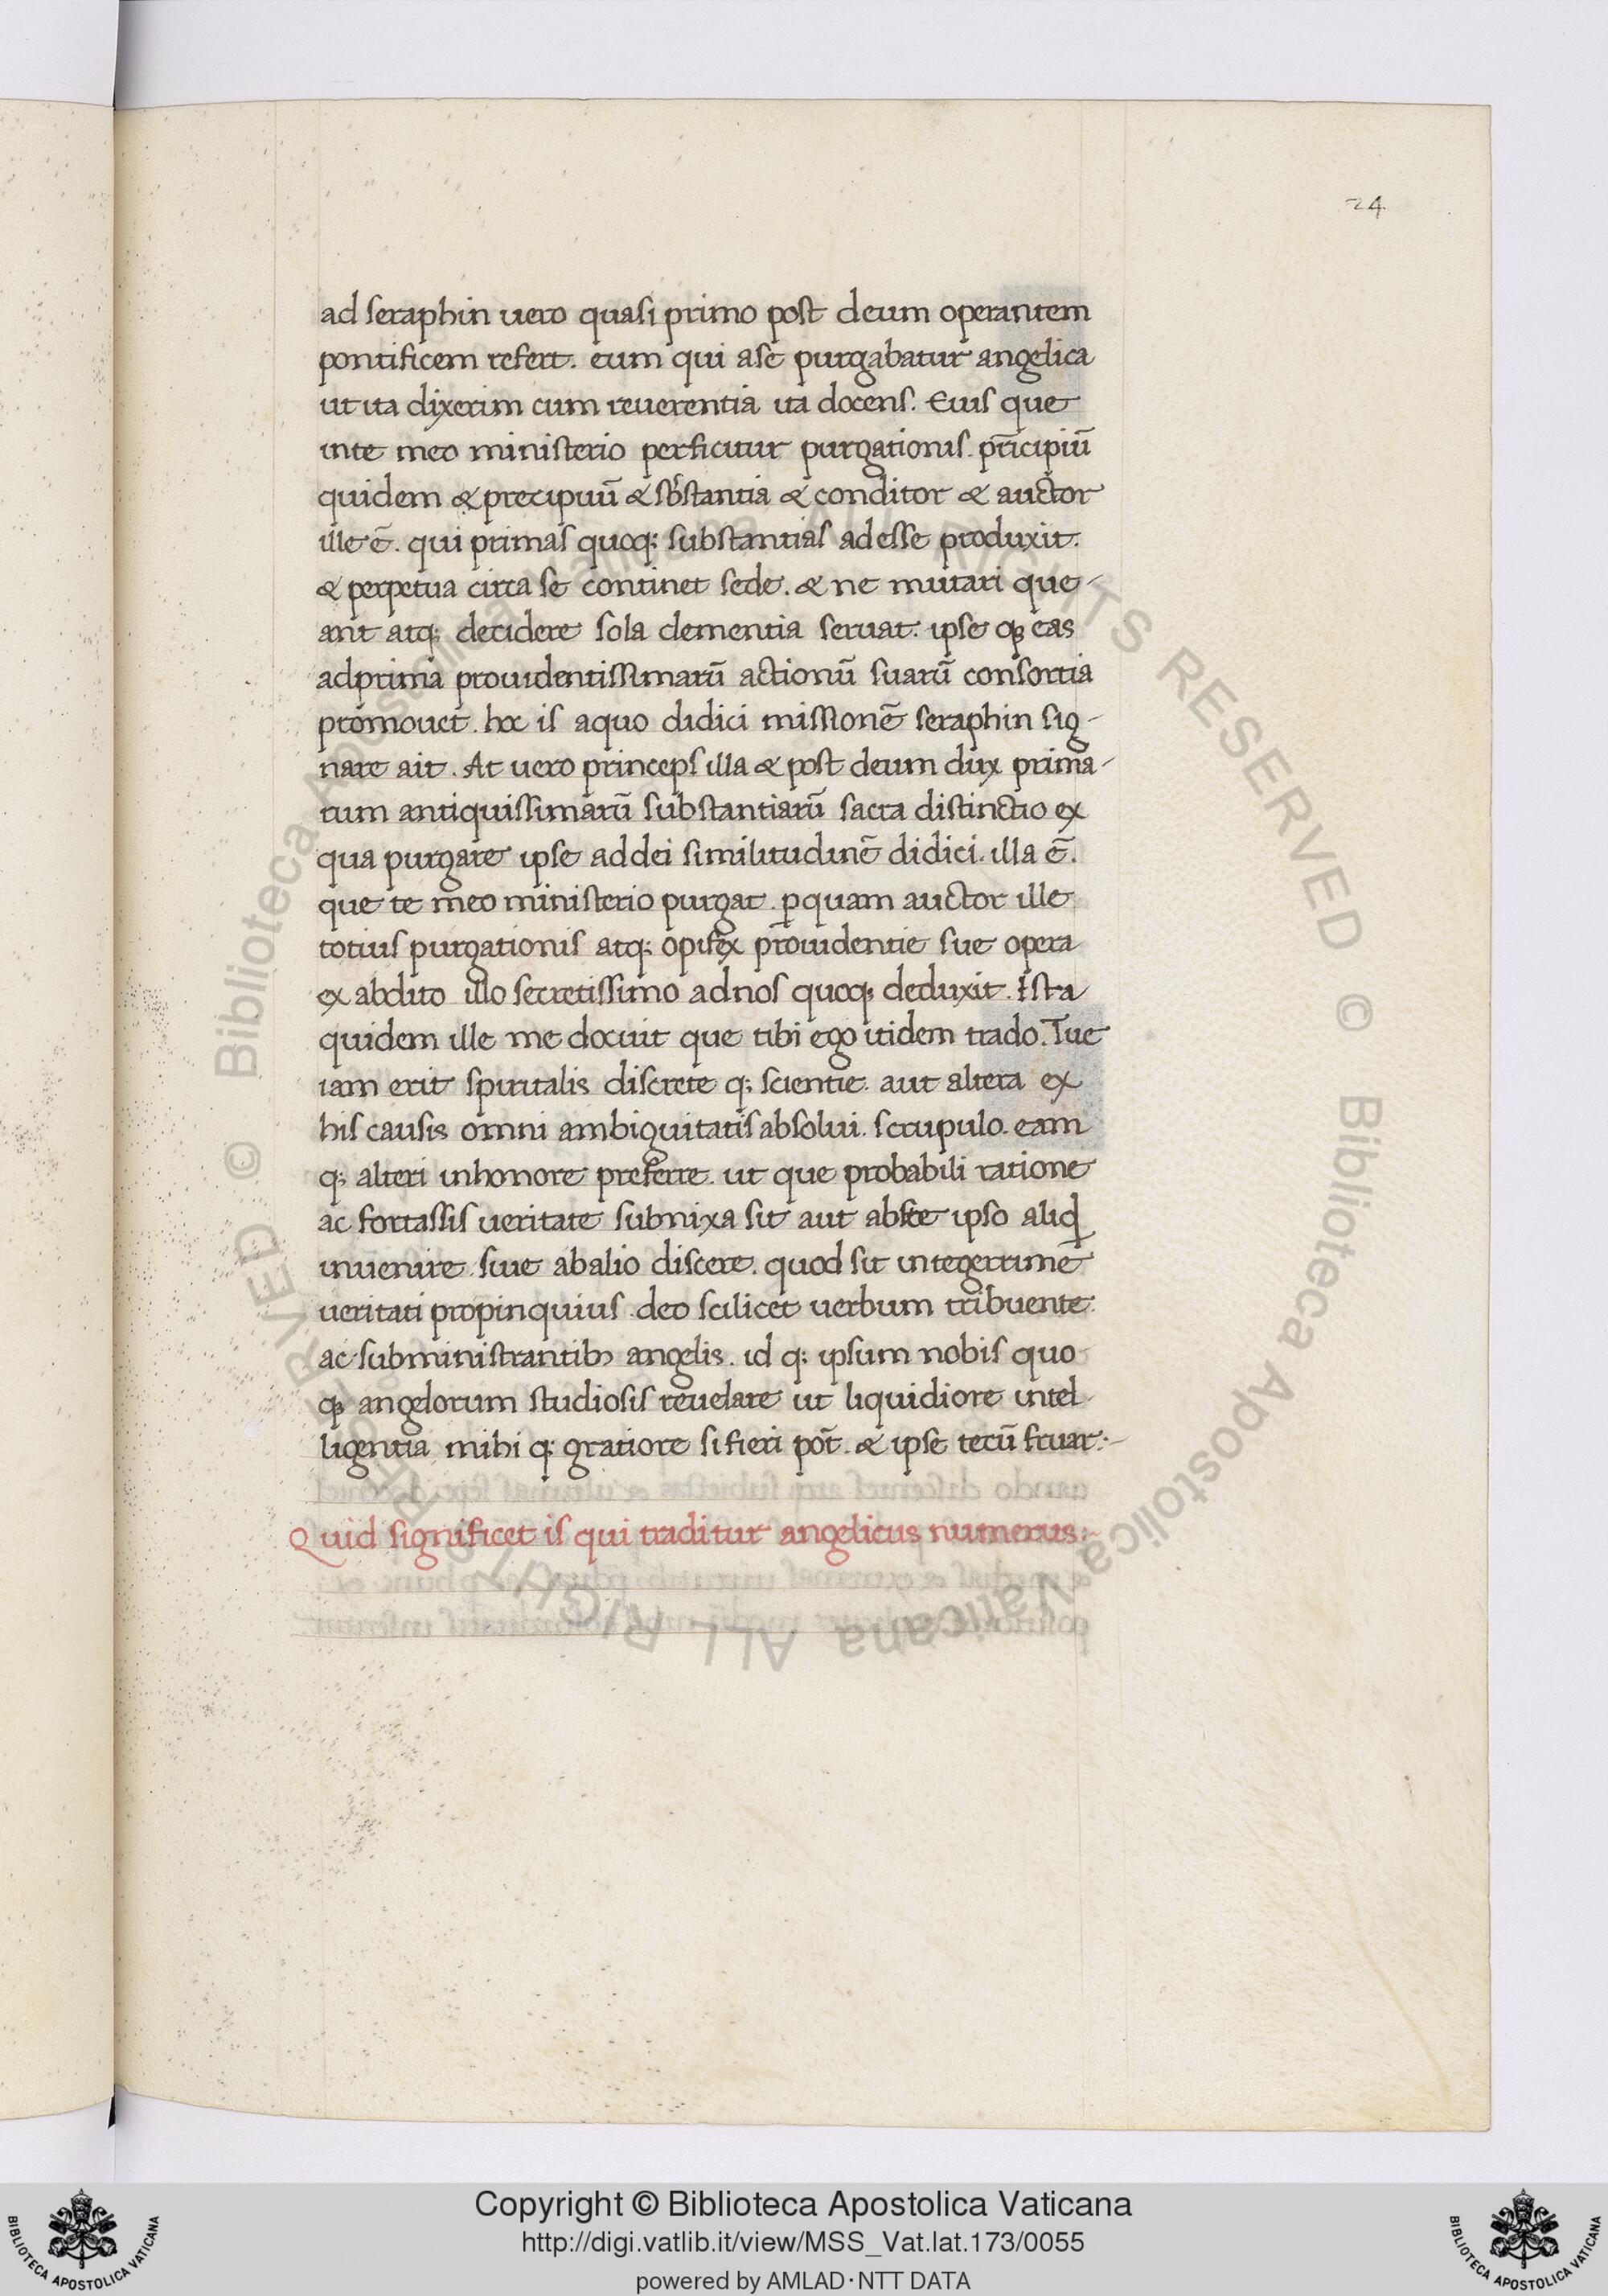 24
ad seraphin uero quasi primo post deum operantem
pontificem refert. eum qui a se purgabatur angelica
ut ita dixerim cum reuerentia ita docens. Euis que
in te meo ministerio perficitur purgationis. pr̄icipiū
quidem & precipuū & sb̄stantia & conditor & auctor
ille ē. qui primas quoq; substantias ad esse produxit.
& perpetua circa se continet sede. & ne mutari que-
ant atq; decidere sola clementia seruat. ipse qȝ eas
ad prima prouidentissimarū actionū suarū consortia
promouet. hoc is a quo didici missionē seraphin sig-
nare ait. At uero princeps illa & post deum dux prima-
rum antiquissimarū substantiarū sacra distinctio ex
qua purgare ipse ad dei similitudinē didici. illa ē.
que te meo ministerio purgat. ꝑ quam auctor ille
totius purgationis atq; opifex prouidentie sue opera
ex abdito illo secretissimo ad nos quoqȝ deduxit. Ista
quidem ille me docuit que tibi ego itidem trado. Tue
iam erit spiritalis discrete q; scientie. aut altera ex
his causis omni ambiguitatis absolui. scrupulo. eam
q; alteri in honore preferre. ut que probabili ratione
ac fortassis ueritate subnixa sit aut abste ipso aliqd
inuenire. siue ab alio discere. quod sit integerrime
ueritati propinquius. deo scilicet uerbum tribuente.
ac subministrantibȝ angelis. id q; ipsum nobis quo-
qȝ angelorum studiosis reuelare ut liquidiore intel-
ligentia mihi q; gratiore si fieri pot̄. & ipse tecū fruar:-
Quid significet is qui traditur angelicus numerus:~
Biblioteca Apostolica Vaticana ALL RIGHTS RESERVED © Biblioteca Apostolica Vaticana ALL RIGHTS RESERVED ©
Copyright © Biblioteca Apostolica Vaticana
http://digi.vatlib.it/view/MSS_Vat.lat.173/0055
powered by AMLAD·NTT DATA
BIBLIOTECA APOSTOLICA VATICANA
BIBLIOTECA APOSTOLICA VATICANA